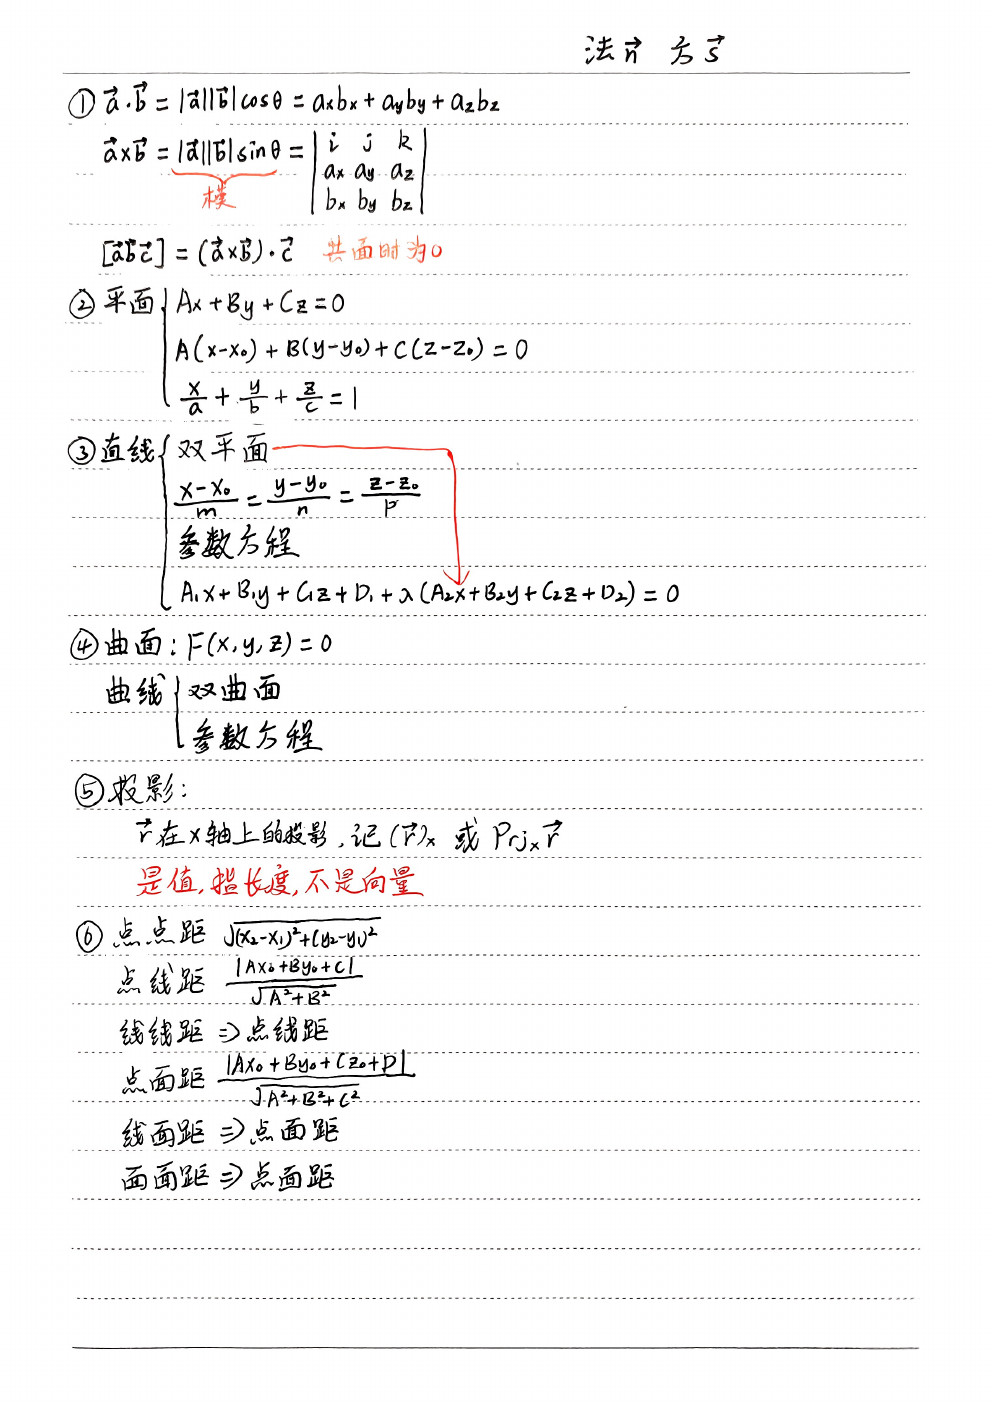 法n⃗ 方s⃗
① a⃗·b⃗ = |a⃗||b⃗|cosθ = axbx + ayby + azbz
a⃗×b⃗ = |a⃗||b⃗|sinθ = | i j k |
| ax ay az |
模
| bx by bz |
[a⃗b⃗c⃗] = (a⃗×b⃗)·c⃗ 共面时为0
② 平面 { Ax + By + Cz = 0
A(x-x₀) + B(y-y₀) + C(z-z₀) = 0
x/a + y/b + z/c = 1
③ 直线 { 双平面
(x-x₀)/m = (y-y₀)/n = (z-z₀)/p
参数方程
A₁x + B₁y + C₁z + D₁ + λ(A₂x + B₂y + C₂z + D₂) = 0
④ 曲面: F(x, y, z) = 0
曲线 { 双曲面
参数方程
⑤ 投影:
r⃗在x轴上的投影, 记(r⃗)ₓ 或 Prjₓr⃗
是值, 指长度, 不是向量
⑥ 点点距 √(x₂-x₁)²+(y₂-y₁)²
点线距 |Ax₀+By₀+C| / √A²+B²
线线距 ⇒ 点线距
点面距 |Ax₀+By₀+Cz₀+D| / √A²+B²+C²
线面距 ⇒ 点面距
面面距 ⇒ 点面距